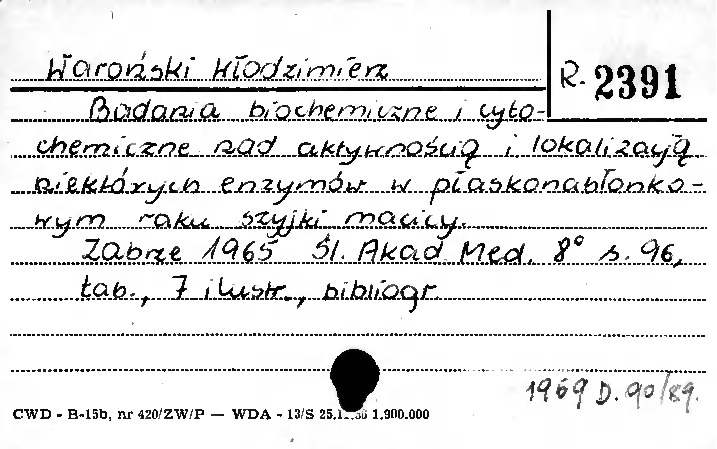 Waroński Włodzimierz
R. 2391
Badania biochemiczne i cyto-
chemiczne nad aktywnością i lokalizacją
niektórych enzymów w płaskonabłonko-
wym raku szyjki macicy.
Zabrze 1965 Śl. Akad Med. 8° s. 96,
tab., 7 ilustr., bibliogr.
1969 D. 90/89.
CWD - B-15b, nr 420/ZW/P — WDA - 13/S 1.900.000